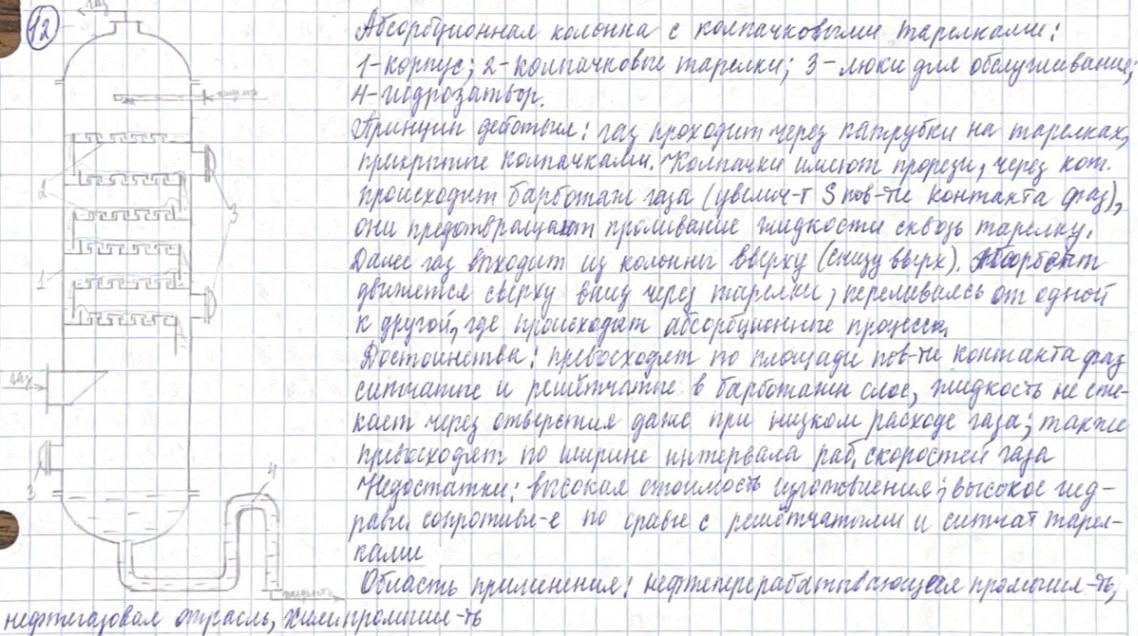 12
газ
Абсорбционная колонна с колпачковыми тарелками:
1-корпус; 2-колпачковые тарелки; 3-люки для обслуживания;
4-гидрозатвор.
Принцип действия: газ проходит через патрубки на тарелках,
прикрытые колпачками. Колпачки имеют прорези, через кот.
происходит барботаж газа (увелич-т S пов-ти контакта фаз),
они предотвращают проливание жидкости сквозь тарелку.
Далее газ выходит из колонны вверху (снизу вверх). Абсорбент
движется сверху вниз через тарелки, переливаясь от одной
к другой, где происходят абсорбционные процессы.
Достоинства: превосходят по площади пов-ти контакта фаз
ситчатые и решётчатые в барботажн слое, жидкость не сте-
кает через отверстия даже при низком расходе газа; также
превосходят по ширине интервала раб. скоростей газа
Недостатки: высокая стоимость изготовления; высокое гид-
равл. сопротивл-е по сравн с решётчатыми и ситчат тарел-
ками
Область применения: нефтеперерабатывающая промышл-ть,
нефтегазовая отрасль, химпромышл-ть
2
3
1
газ
3
4
жидкость